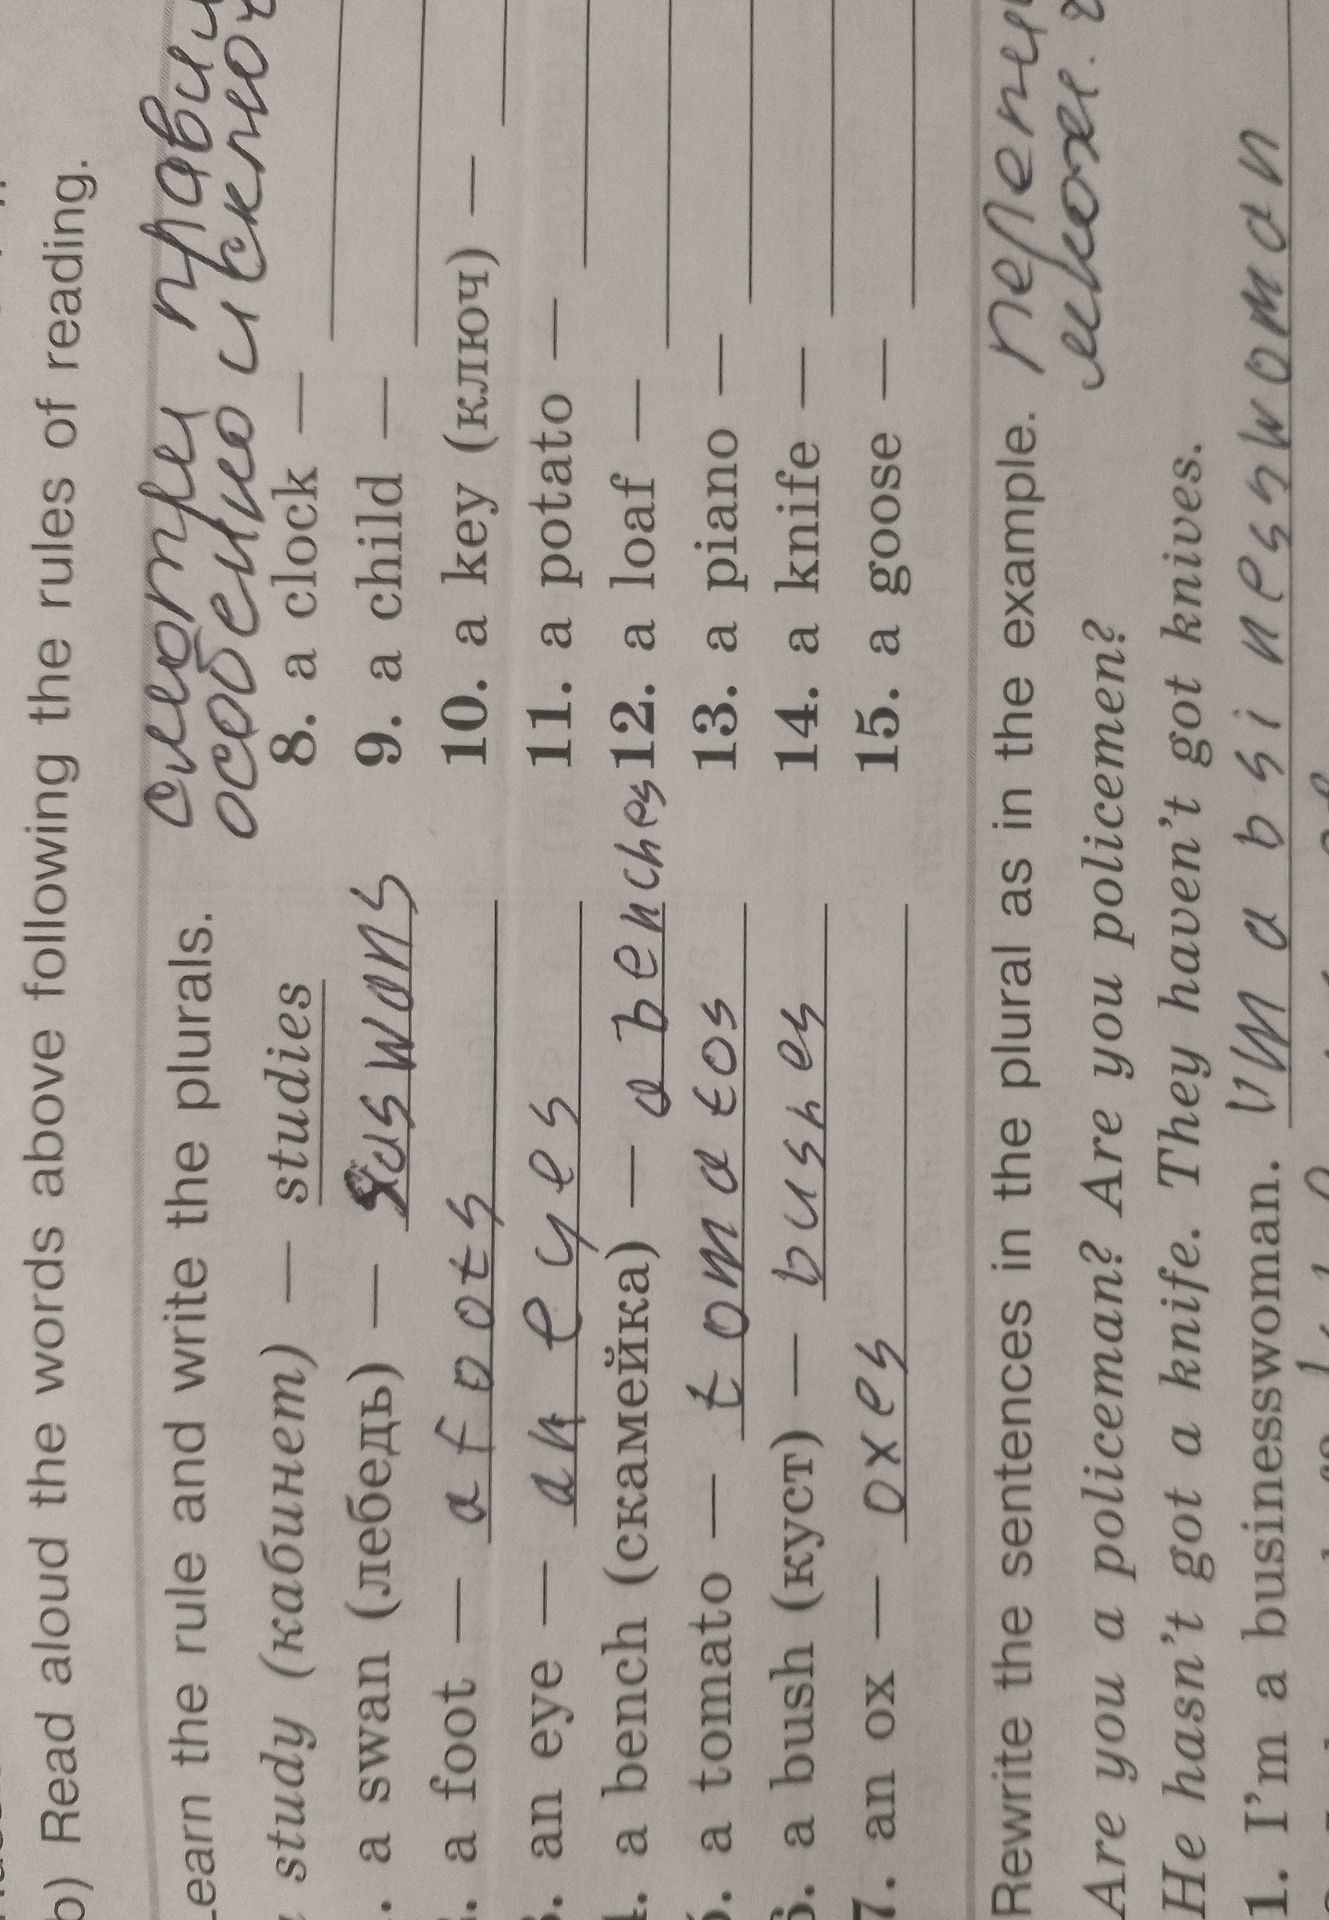 b) Read aloud the words above following the rules of reading.
Learn the rule and write the plurals. смотри
особенно
study (кабинет) — studies
a swan (лебедь) — swans
a foot — a foots
an eye — an eyes
4. a bench (скамейка) — a benches
a tomato — tomatos
6. a bush (куст) — bushes
7. an ox — oxes
8. a clock —
9. a child —
10. a key (ключ) —
11. a potato —
12. a loaf —
13. a piano —
14. a knife —
15. a goose —
Rewrite the sentences in the plural as in the example.
Are you a policeman? Are you policemen?
He hasn't got a knife. They haven't got knives.
1. I'm a businesswoman. I'm a bsinesswoman